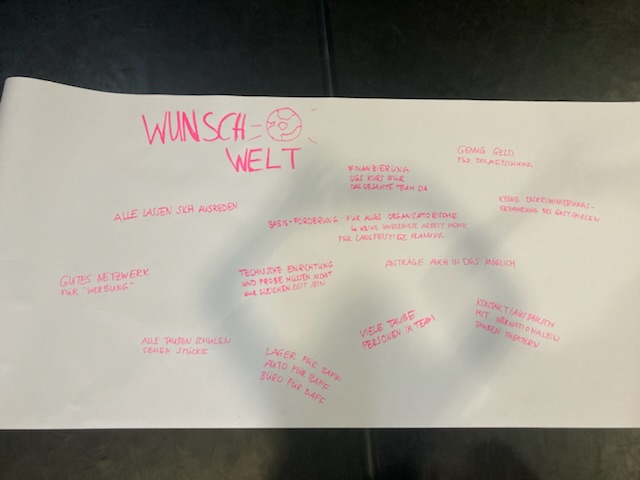 WUNSCH
WELT
FINANZIERUNG
DGS KURS FÜR
DAS GESAMTE TEAM DA
GENUG GELD
FÜR DOLMETSCHUNG
KEINE DISKRIMINIERUNGS-
ERFAHRUNG BEI GASTSPIELEN
ALLE LASSEN SICH AUSREDEN
BASIS-FÖRDERUNG FÜR ALLES ORGANISATORISCHE
KEINE UNBEZAHLTE ARBEIT MEHR
FÜR LANGFRISTIGE PLANUNG
GUTES NETZWERK
FÜR "WERBUNG"
TECHNISCHE EINRICHTUNG
UND PROBE MÜSSEN NICHT
ZUR GLEICHEN ZEIT SEIN
ANTRÄGE AUCH IN DGS MÖGLICH
ALLE TAUBEN SCHULEN
SEHEN STÜCKE
LAGER FÜR BAFF
AUTO FÜR BAFF
BÜRO FÜR BAFF
VIELE TAUBE
PERSONEN IM TEAM
KONTAKT/AUSTAUSCH
MIT INTERNATIONALEN
TAUBEN THEATERN